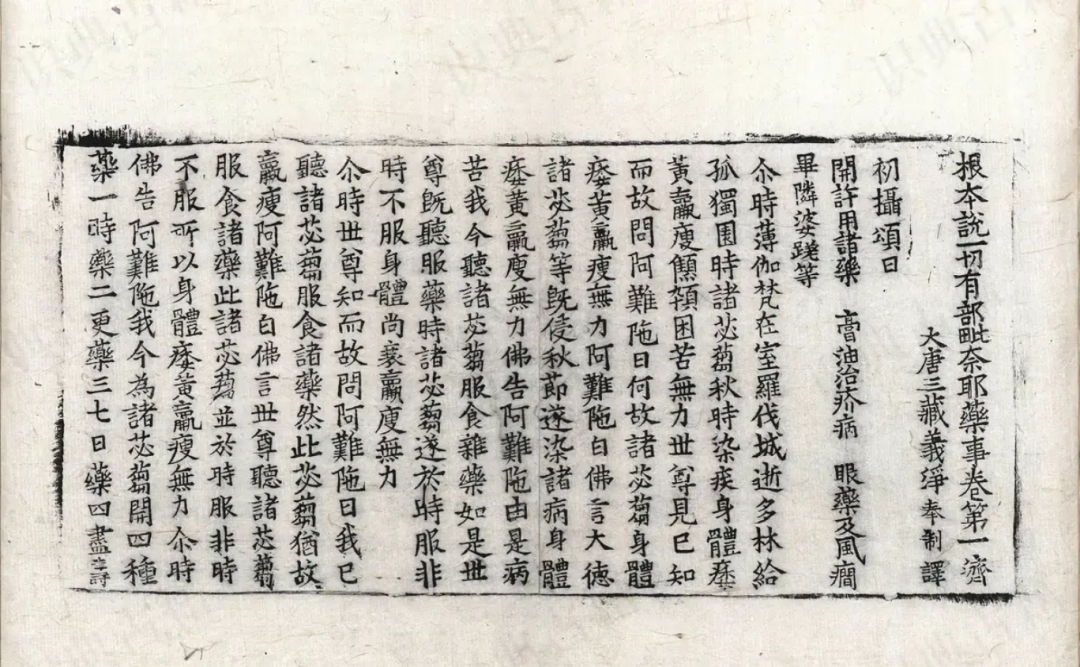 根本說一切有部毗奈耶藥事卷第一 濟
大唐三藏義淨奉制譯
初攝頌曰
開許用諸藥 膏油治疥病 眼藥及風癇
畢隣婆蹉等
尒時薄伽梵在室羅伐城逝多林給
孤獨園時諸苾蒭秋時染疾身體痿
黃羸瘦顦顇困苦無力世尊見已知
而故問阿難陁曰何故諸苾蒭身體
痿黃羸瘦無力阿難陁白佛言大德
諸苾蒭等既侵秋節遂染諸病身體
痿黃羸瘦無力佛告阿難陁由是病
苦我今聽諸苾蒭服食雜藥如是世
尊既聽服藥時諸苾蒭遂於時服非
時不服身體尚衰羸瘦無力
尒時世尊知而故問阿難陁曰我已
聽諸苾蒭服食諸藥然此苾蒭猶故
羸瘦阿難陁白佛言世尊聽諸苾蒭
服食諸藥此諸苾蒭並於時服非時
不服所以身體痿黃羸瘦無力尒時
佛告阿難陁我今為諸苾蒭開四種
藥一時藥二更藥三七日藥四盡壽